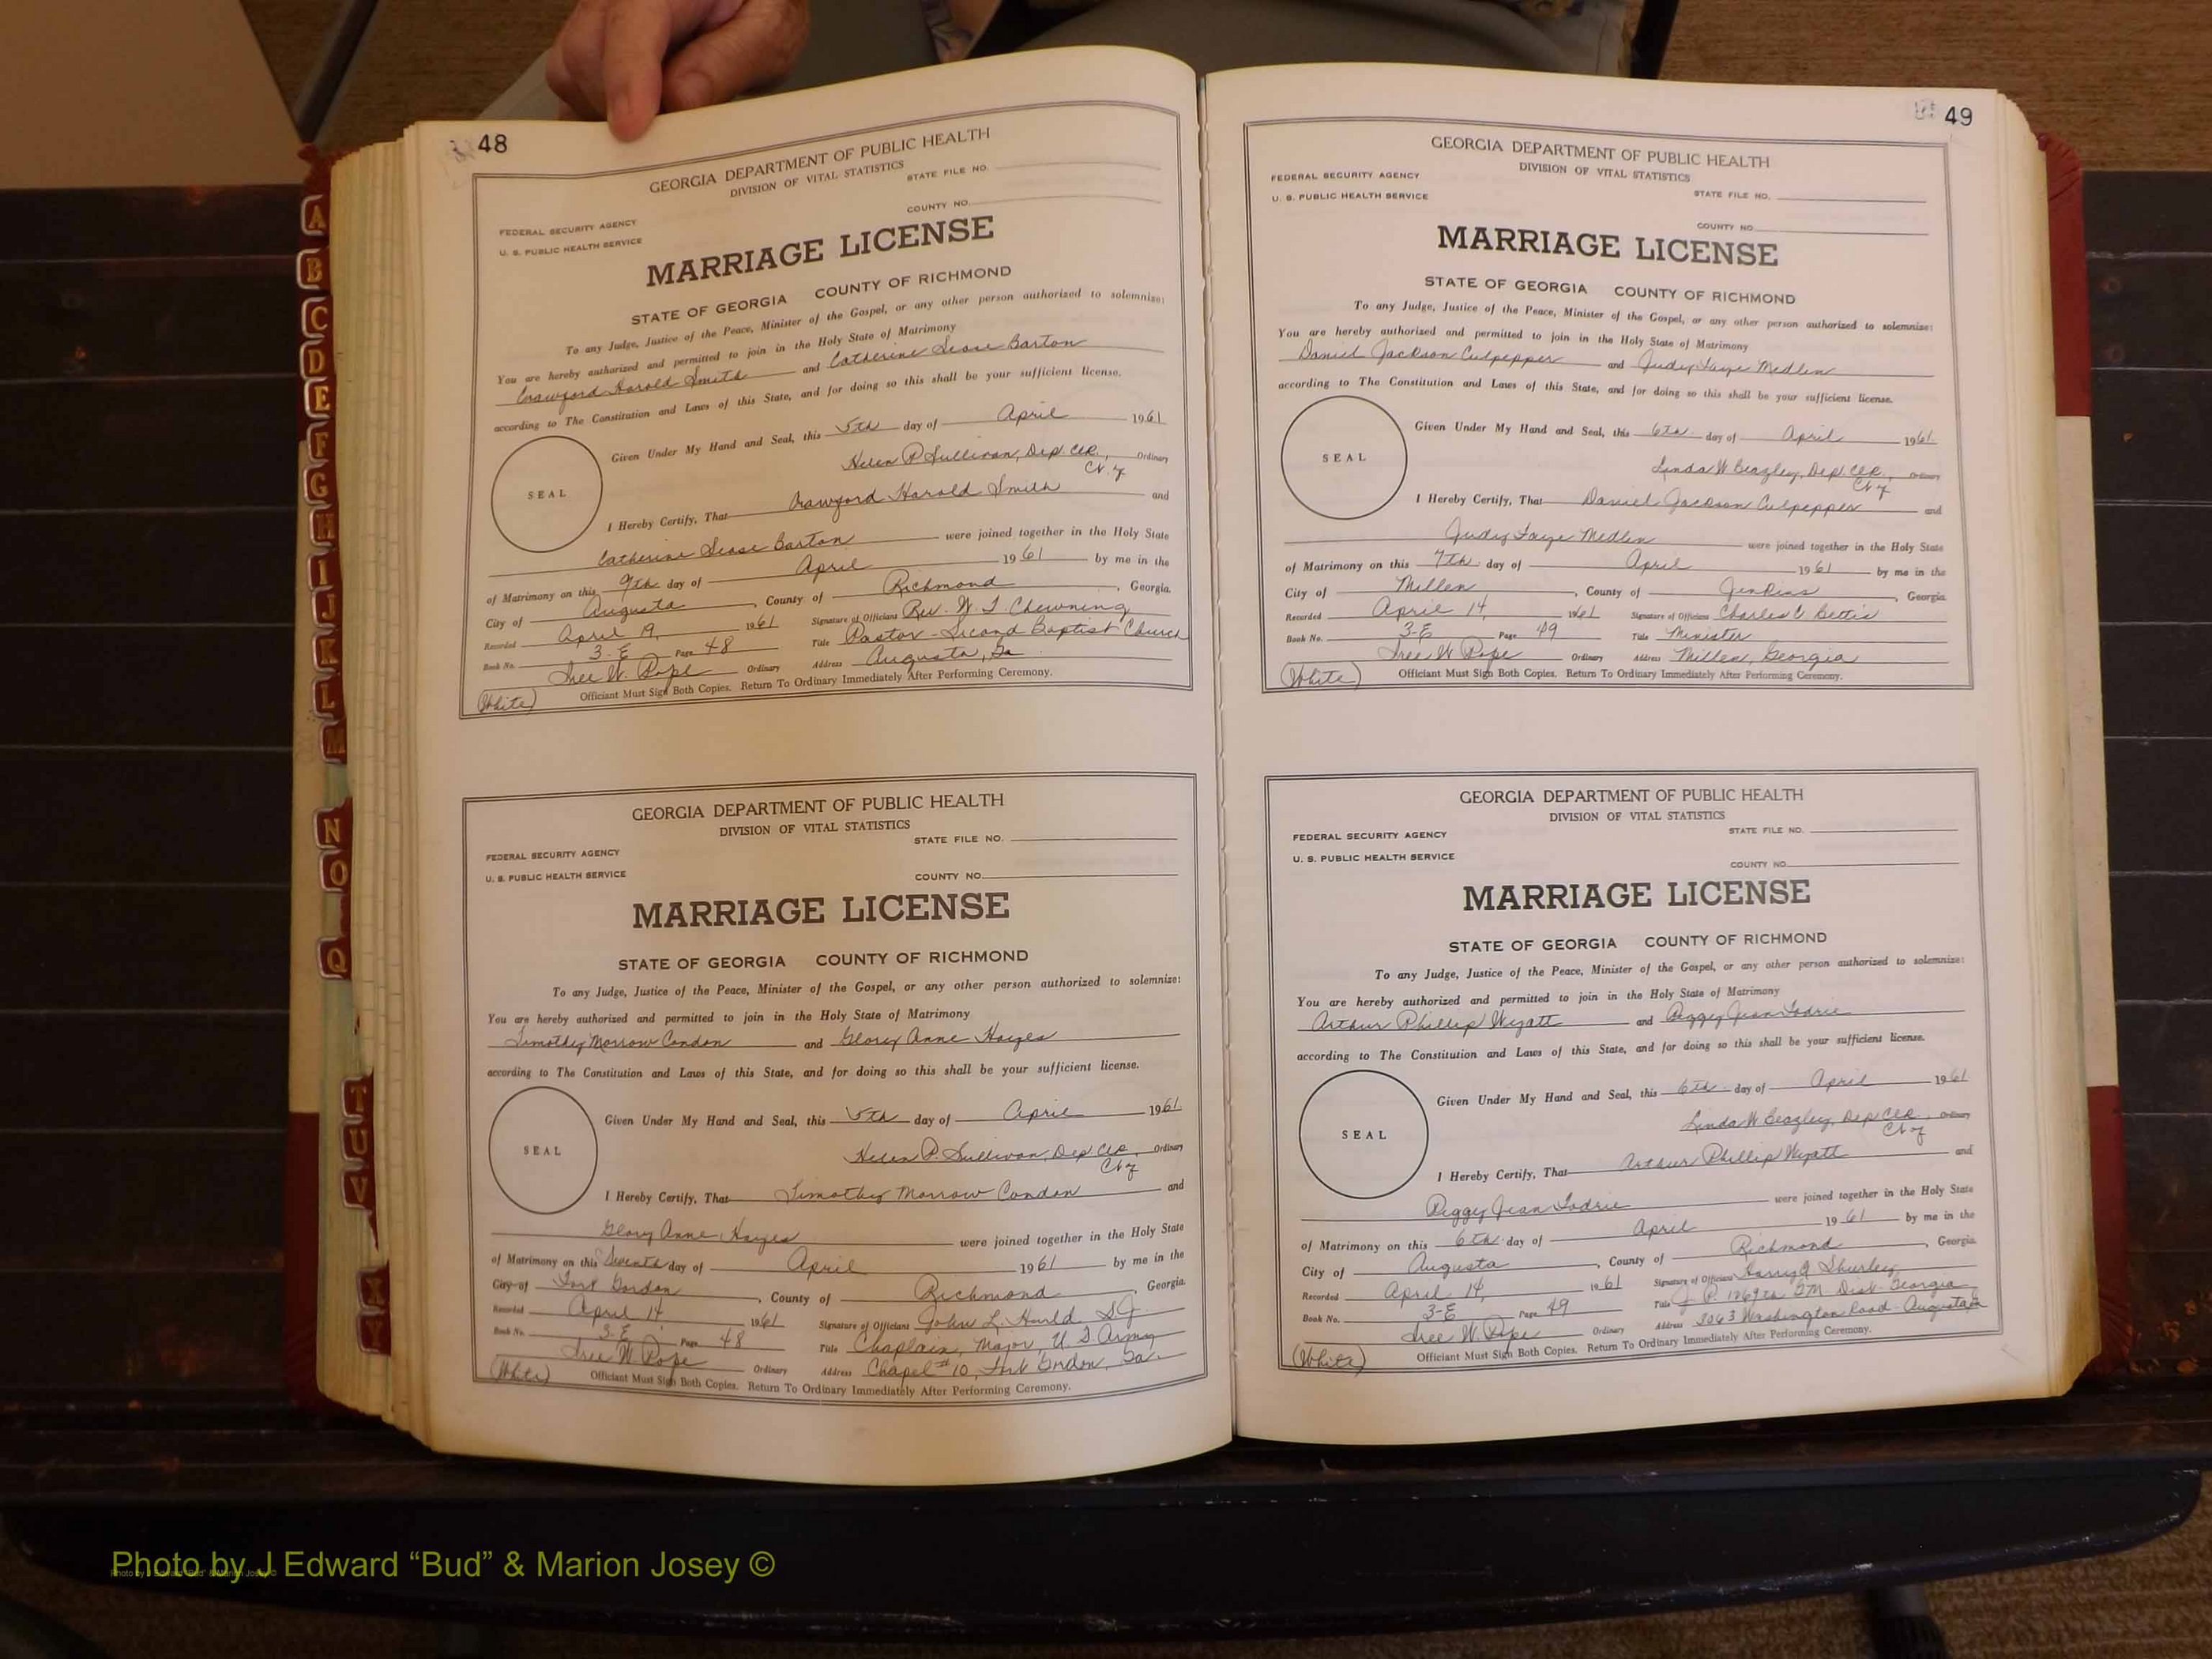 48
GEORGIA DEPARTMENT OF PUBLIC HEALTH
DIVISION OF VITAL STATISTICS
STATE FILE NO.
COUNTY NO.
FEDERAL SECURITY AGENCY
U. S. PUBLIC HEALTH SERVICE
MARRIAGE LICENSE
STATE OF GEORGIA COUNTY OF RICHMOND
To any Judge, Justice of the Peace, Minister of the Gospel, or any other person authorized to solemnize:
You are hereby authorized and permitted to join in the Holy State of Matrimony
Crawford Harold Smith and Catherine Sease Barton
according to The Constitution and Laws of this State, and for doing so this shall be your sufficient license.
Given Under My Hand and Seal, this 5th day of April 1961
SEAL
Helen P. Sullivan, Dep. Clk., Ordinary
I Hereby Certify, That Crawford Harold Smith and
Catherine Sease Barton were joined together in the Holy State
of Matrimony on this 9th day of April 1961 by me in the
City of Augusta, County of Richmond, Georgia.
Recorded April 19, 1961 Signature of Officiant Rev. W. J. Chewning
Book No. 3-E Page 48 Title Pastor - Second Baptist Church
W. Pope Ordinary Address Augusta, Ga
(White) Officiant Must Sign Both Copies. Return To Ordinary Immediately After Performing Ceremony.
GEORGIA DEPARTMENT OF PUBLIC HEALTH
DIVISION OF VITAL STATISTICS
STATE FILE NO.
FEDERAL SECURITY AGENCY
U. S. PUBLIC HEALTH SERVICE COUNTY NO.
MARRIAGE LICENSE
STATE OF GEORGIA COUNTY OF RICHMOND
To any Judge, Justice of the Peace, Minister of the Gospel, or any other person authorized to solemnize:
You are hereby authorized and permitted to join in the Holy State of Matrimony
Timothy Morrow Condon and Glory Anne Hayes
according to The Constitution and Laws of this State, and for doing so this shall be your sufficient license.
Given Under My Hand and Seal, this 5th day of April 1961
SEAL
Helen P. Sullivan, Dep. Clk., Ordinary
I Hereby Certify, That Timothy Morrow Condon and
Glory Anne Hayes were joined together in the Holy State
of Matrimony on this Seventh day of April 1961 by me in the
City of Fort Gordon, County of Richmond Georgia.
Recorded April 14, 1961 Signature of Officiant John L. SJ.
Book No. 3-E Page 48 Title Chaplain, Major, U.S. Army
W. Pope Ordinary Address Chapel #10, Fort Gordon, Ga.
(White) Officiant Must Sign Both Copies. Return To Ordinary Immediately After Performing Ceremony.
49
GEORGIA DEPARTMENT OF PUBLIC HEALTH
DIVISION OF VITAL STATISTICS
FEDERAL SECURITY AGENCY
U. S. PUBLIC HEALTH SERVICE STATE FILE NO.
COUNTY NO.
MARRIAGE LICENSE
STATE OF GEORGIA COUNTY OF RICHMOND
To any Judge, Justice of the Peace, Minister of the Gospel, or any other person authorized to solemnize:
You are hereby authorized and permitted to join in the Holy State of Matrimony
Daniel Jackson Culpepper and Judy Faye Medlen
according to The Constitution and Laws of this State, and for doing so this shall be your sufficient license.
Given Under My Hand and Seal, this 6th day of April 1961
SEAL
Linda W. Beazley, Dep. Clk., Ordinary
I Hereby Certify, That Daniel Jackson Culpepper and
Judy Faye Medlen were joined together in the Holy State
of Matrimony on this 7th day of April 1961 by me in the
City of Millen, County of Jenkins, Georgia
Recorded April 14, 1961 Signature of Officiant Charles C. Bettis
Book No. 3-E Page 49 Title Minister
W. Pope Ordinary Address Millen, Georgia
(White) Officiant Must Sign Both Copies. Return To Ordinary Immediately After Performing Ceremony.
GEORGIA DEPARTMENT OF PUBLIC HEALTH
DIVISION OF VITAL STATISTICS
FEDERAL SECURITY AGENCY STATE FILE NO.
U. S. PUBLIC HEALTH SERVICE
COUNTY NO.
MARRIAGE LICENSE
STATE OF GEORGIA COUNTY OF RICHMOND
To any Judge, Justice of the Peace, Minister of the Gospel, or any other person authorized to solemnize:
You are hereby authorized and permitted to join in the Holy State of Matrimony
Arthur Phillip Wyatt and Peggy Jean
according to The Constitution and Laws of this State, and for doing so this shall be your sufficient license.
Given Under My Hand and Seal, this 6th day of April 1961
SEAL
Linda W. Beazley, Dep Clk., Ordinary
I Hereby Certify, That Arthur Phillip Wyatt and
Peggy Jean were joined together in the Holy State
of Matrimony on this 6th day of April 1961 by me in the
City of Augusta, County of Richmond, Georgia.
Recorded April 14, 1961 Signature of Officiant Harry A. Shurley
Book No. 3-E Page 49 Title J. P. 1269th G.M. Dist. Georgia
W. Pope Ordinary Address 3063 Washington Road - Augusta
(White) Officiant Must Sign Both Copies. Return To Ordinary Immediately After Performing Ceremony.
A
B
C
D
E
F
G
H
I
J
K
L
M
N
O
Q
T
U
V
X
Y
Photo by J Edward “Bud” & Marion Josey ©
Photo by J Edward “Bud” & Marion Josey ©